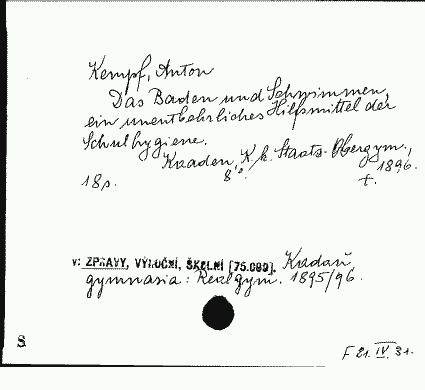 Kempf, Anton
Das Baden und Schwimmen,
ein unentbehrliches Hilfsmittel der
Schulhygiene.
Kaaden, K. k. Staats-Obergym.,
18 s. 8°. 1896.
t.
v: ZPRÁVY, VÝROČNÍ, ŠKOLNÍ [75.000]. Kadaň
gymnasia: Realgym. 1895/96.
S
F 21. IV. 31.